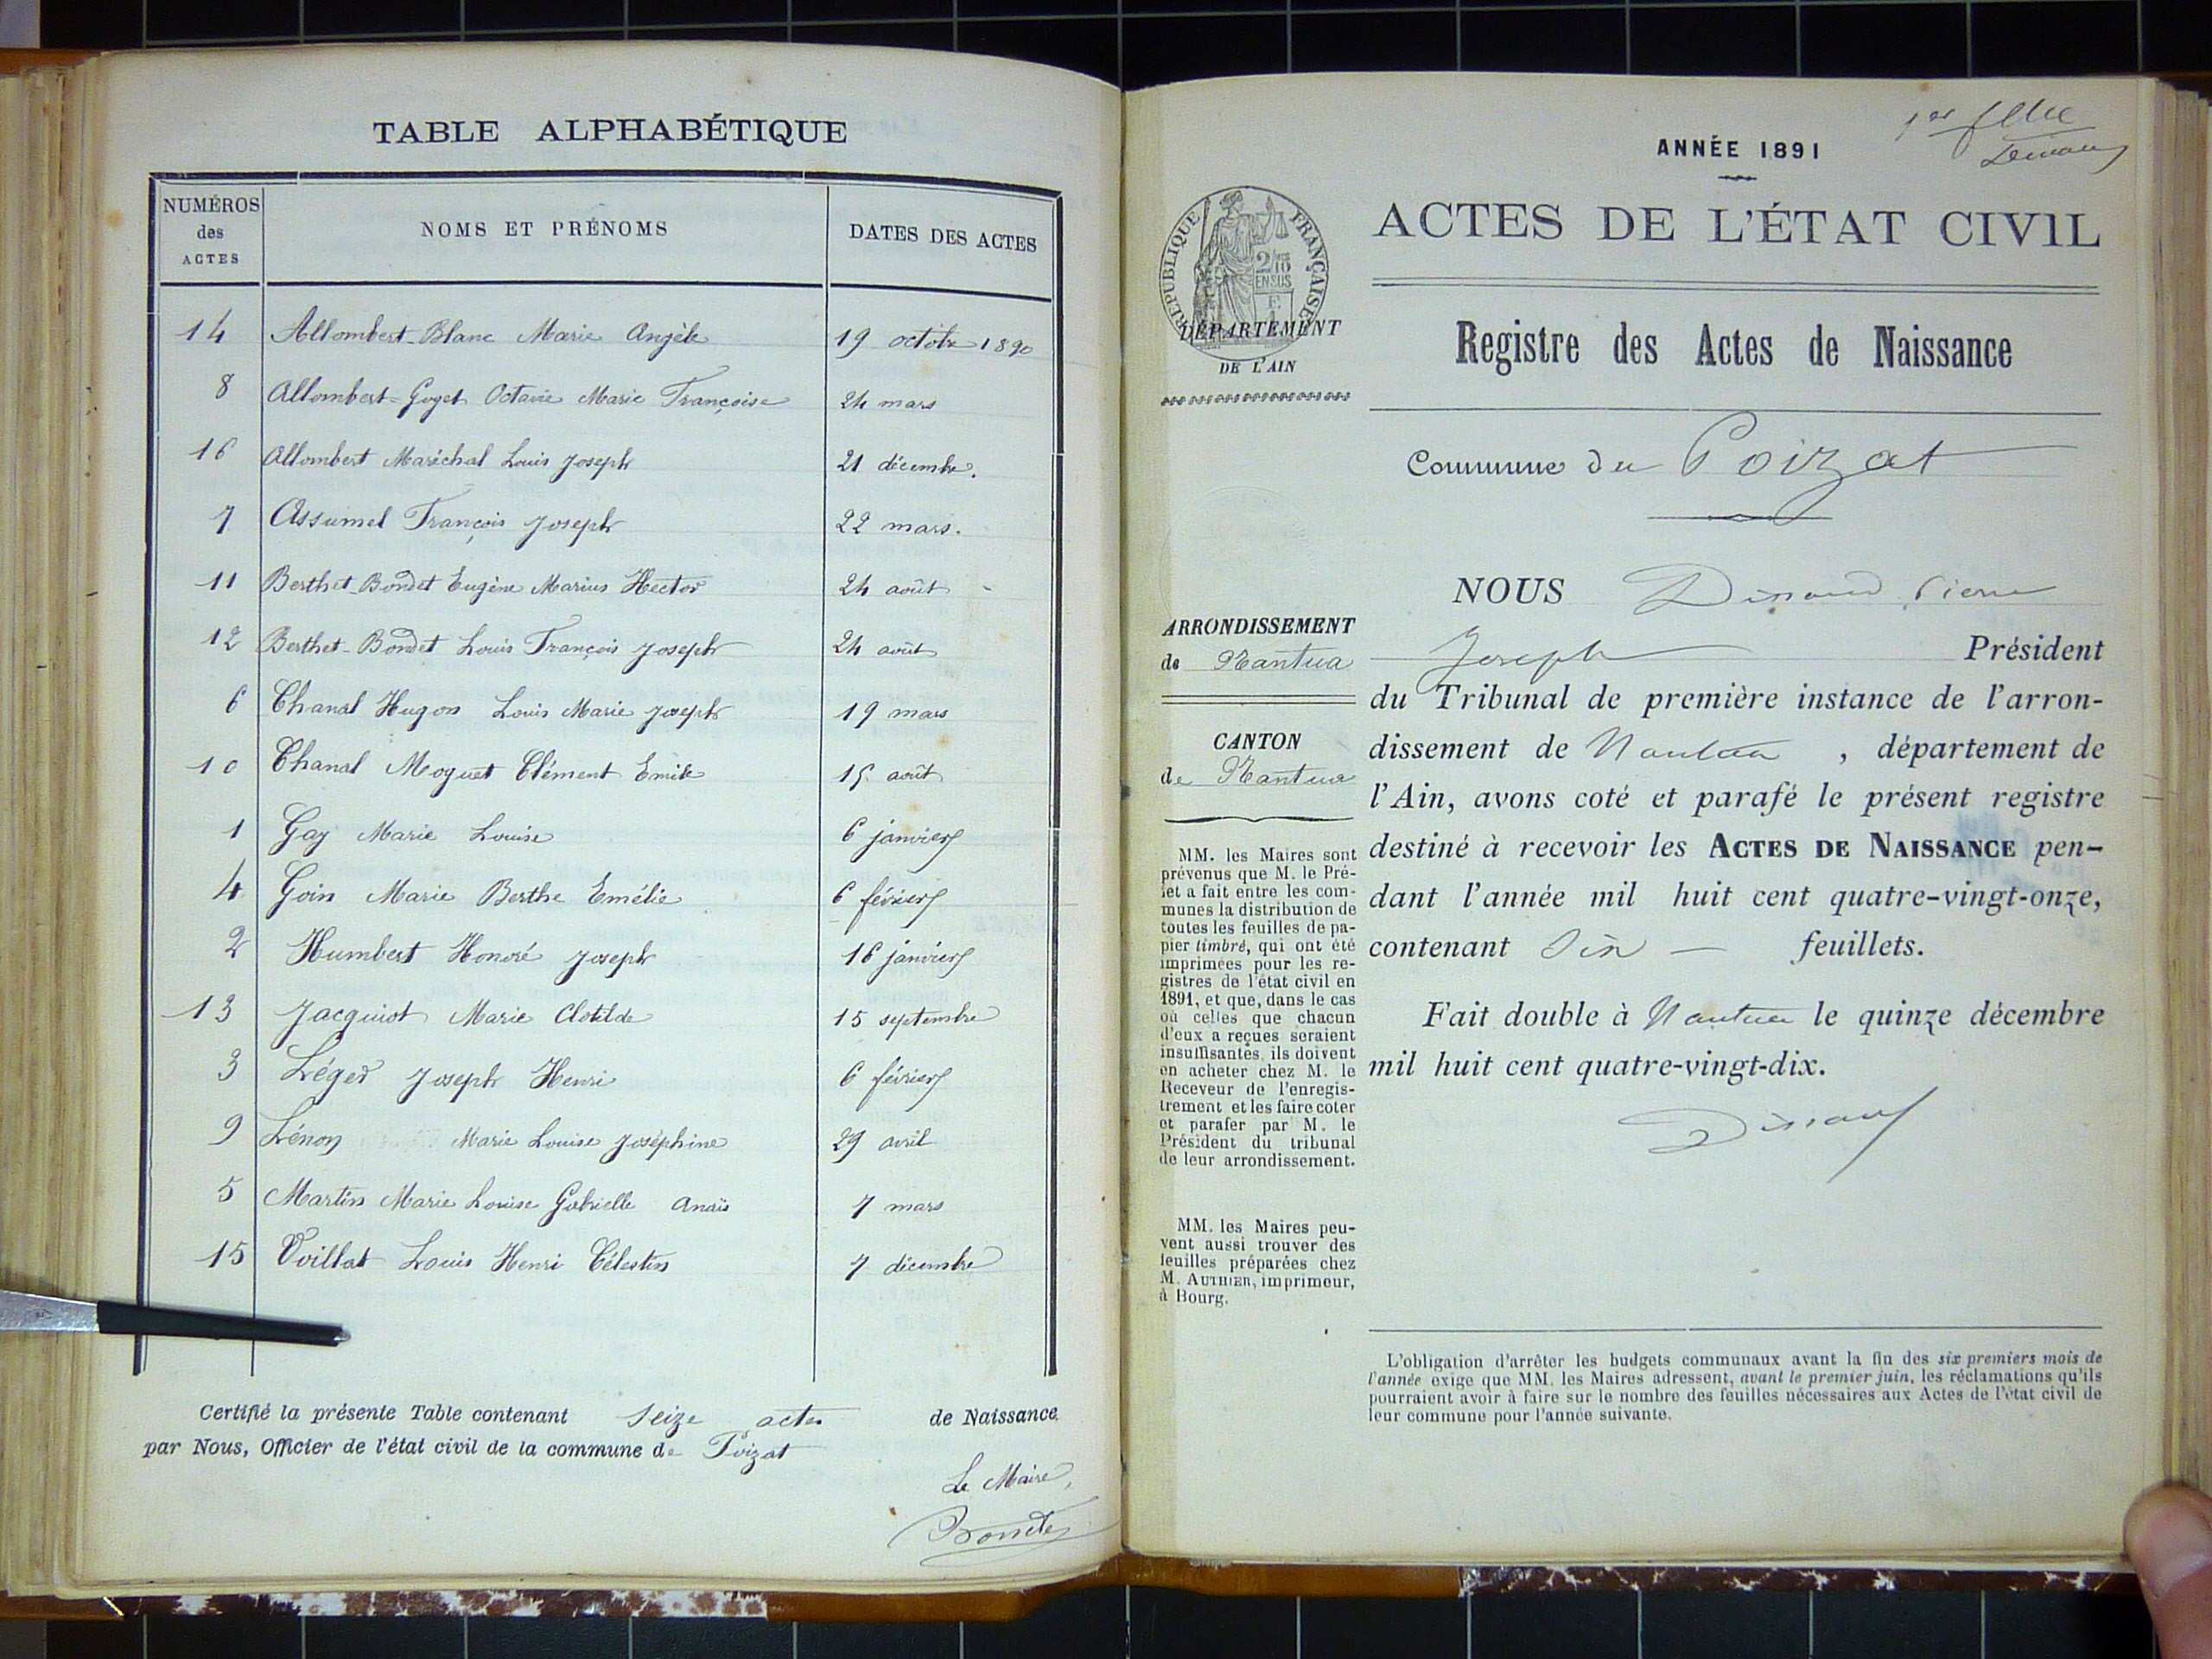 TABLE ALPHABÉTIQUE
NUMÉROS des ACTES NOMS ET PRÉNOMS DATES DES ACTES
14 Allombert-Blanc Marie Angèle 19 octobre 1890
8 Allombert-Goyet Octavie Marie Françoise 24 mars
16 Allombert Maréchal Louis Joseph 21 décembre.
7 Assumel François Joseph 22 mars.
11 Berthet-Bondet Eugène Marius Hector 24 août
12 Berthet-Bondet Louis François Joseph 24 août
6 Chanal Hugon Louis Marie Joseph 19 mars
10 Chanal Moguet Clément Emile 15 août
1 Gay Marie Louise 6 janvier
4 Goin Marie Berthe Emélie 6 février
2 Humbert Honoré Joseph 16 janvier
13 Jacquiot Marie Clotilde 15 septembre
3 Léger Joseph Henri 6 février
9 Lénon Marie Louise Joséphine 29 avril
5 Martin Marie Louise Gabrielle Anaïs 7 mars
15 Voillat Louis Henri Célestin 7 décembre
Certifié la présente Table contenant seize actes de Naissance
par Nous, Officier de l'état civil de la commune de Poizat
Le Maire,
ANNÉE 1891
ACTES DE L'ÉTAT CIVIL
RÉPUBLIQUE FRANÇAISE
2/10 EN SUS
DÉPARTEMENT
DE L'AIN
Registre des Actes de Naissance
Commune du Poizat
ARRONDISSEMENT
de Nantua
CANTON
de Nantua
MM. les Maires sont
prévenus que M. le Pré-
fet a fait entre les com-
munes la distribution de
toutes les feuilles de pa-
pier timbré, qui ont été
imprimées pour les re-
gistres de l'état civil en
1891, et que, dans le cas
où celles que chacun
d'eux a reçues seraient
insuffisantes, ils doivent
en acheter chez M. le
Receveur de l'enregis-
trement et les faire coter
et parafer par M. le
Président du tribunal
de leur arrondissement.
MM. les Maires peu-
vent aussi trouver des
feuilles préparées chez
M. AUTHIER, imprimeur,
à Bourg.
NOUS Pierre
Joseph Président
du Tribunal de première instance de l'arron-
dissement de Nantua , département de
l'Ain, avons coté et parafé le présent registre
destiné à recevoir les ACTES DE NAISSANCE pen-
dant l'année mil huit cent quatre-vingt-onze,
contenant feuillets.
Fait double à Nantua le quinze décembre
mil huit cent quatre-vingt-dix.
L'obligation d'arrêter les budgets communaux avant la fin des six premiers mois de
l'année exige que MM. les Maires adressent, avant le premier juin, les réclamations qu'ils
pourraient avoir à faire sur le nombre des feuilles nécessaires aux Actes de l'état civil de
leur commune pour l'année suivante.